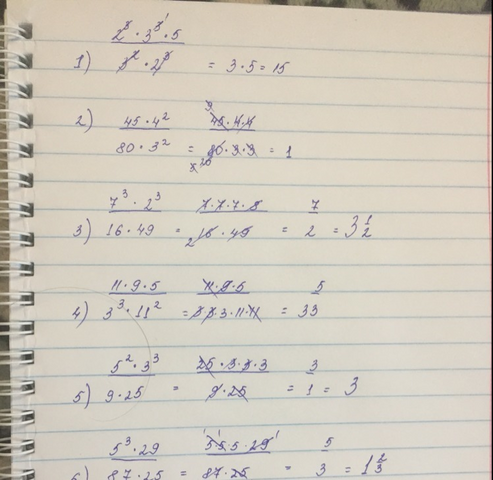 1) (2³ · 3³ · 5) / (3² · 2³) = 3 · 5 = 15
2) (45 · 4²) / (80 · 3²) = (45 · 4 · 4) / (80 · 3 · 3) = 1
3) (7³ · 2³) / (16 · 49) = (7 · 7 · 7 · 8) / (16 · 49) = 7 / 2 = 3 1/2
4) (11 · 9 · 5) / (3³ · 11²) = (11 · 9 · 5) / (3 · 3 · 3 · 11 · 11) = 5 / 33
5) (5² · 3³) / (9 · 25) = (25 · 3 · 3 · 3) / (9 · 25) = 3 / 1 = 3
6) (5³ · 29) / (87 · 25) = (5 · 5 · 5 · 29) / (87 · 25) = 5 / 3 = 1 2/3